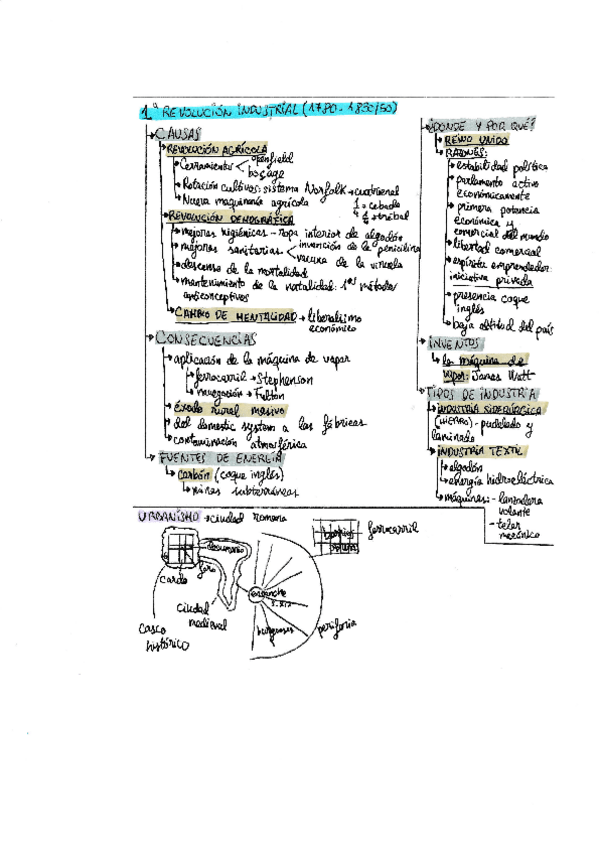 1.ª REVOLUCIÓN INDUSTRIAL (1780 - 1830/50)
CAUSAS
REVOLUCIÓN AGRÍCOLA
Cerramientos openfield
bocage
Rotación cultivos: sistema Norfolk cuatrienal
Nueva maquinaria agrícola
1 = cebada
trébol
REVOLUCIÓN DEMOGRÁFICA
mejoras higiénicas - ropa interior de algodón
mejoras sanitarias invención de la penicilina
vacuna de la viruela
descenso de la mortalidad
mantenimiento de la natalidad: 1os métodos
anticonceptivos
CAMBIO DE MENTALIDAD → liberalismo
económico
CONSECUENCIAS
aplicación de la máquina de vapor
ferrocarril → Stephenson
navegación → Fulton
éxodo rural masivo
del domestic system a las fábricas
contaminación atmosférica
FUENTES DE ENERGÍA
carbón (coque inglés)
minas subterráneas
¿DONDE Y POR QUÉ?
REINO UNIDO
RAZONES:
estabilidad política
parlamento activo
económicamente
primera potencia
económica y
comercial del mundo
libertad comercial
espíritu emprendedor:
iniciativa privada
presencia coque
inglés
baja altitud del país
INVENTOS
la máquina de
vapor: James Watt
TIPOS DE INDUSTRIA
INDUSTRIA SIDERÚRGICA
(HIERRO) - pudelado y
laminado
INDUSTRIA TEXTIL
algodón
energía hidroeléctrica
máquinas: - lanzadera
volante
- telar
mecánico
URBANISMO → ciudad romana
barrios
ferrocarril
decumano
foro
cardo
ensanche
S.XIX
ciudad
medieval
burgueses
periferia
casco
histórico